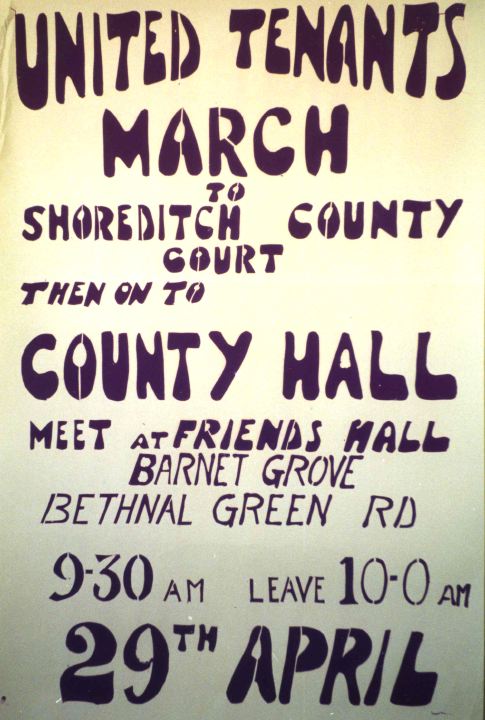 UNITED TENANTS
MARCH
TO
SHOREDITCH COUNTY
COURT
THEN ON TO
COUNTY HALL
MEET AT FRIENDS HALL
BARNET GROVE
BETHNAL GREEN RD
9-30 AM LEAVE 10-0 AM
29TH APRIL